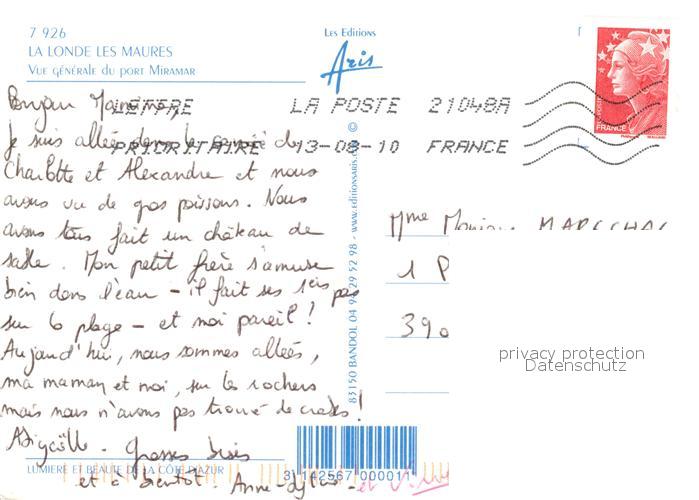 7 926
LA LONDE LES MAURES
VUE GÉNÉRALE DU PORT MIRAMAR
Les Editions
Aris
FRANCE
LETTRE LA POSTE 21048A
PRIORITAIRE 13-08-10 FRANCE
Bonjour
Je suis allée dans le de
Charlotte et Alexandre et nous
avons vu de gos poissons. Nous
avons tous fait un château de
sable. Mon petit frère s'amuse
bien dans l'eau - il fait ses 1ers pas
sur la plage - et moi pareil !
Aujourd'hui, nous sommes allées,
ma maman et moi, sur les rochers
mais nous n'avons pas trouvé de crabes !
Grosses bises
et à bientôt. Anne-
LUMIERE ET BEAUTÉ DE LA CÔTE D'AZUR
83150 BANDOL 04 94 29 52 98 - www.editionsaris.com ©
3 142567 000011
Mme
1 P
390
privacy protection
Datenschutz